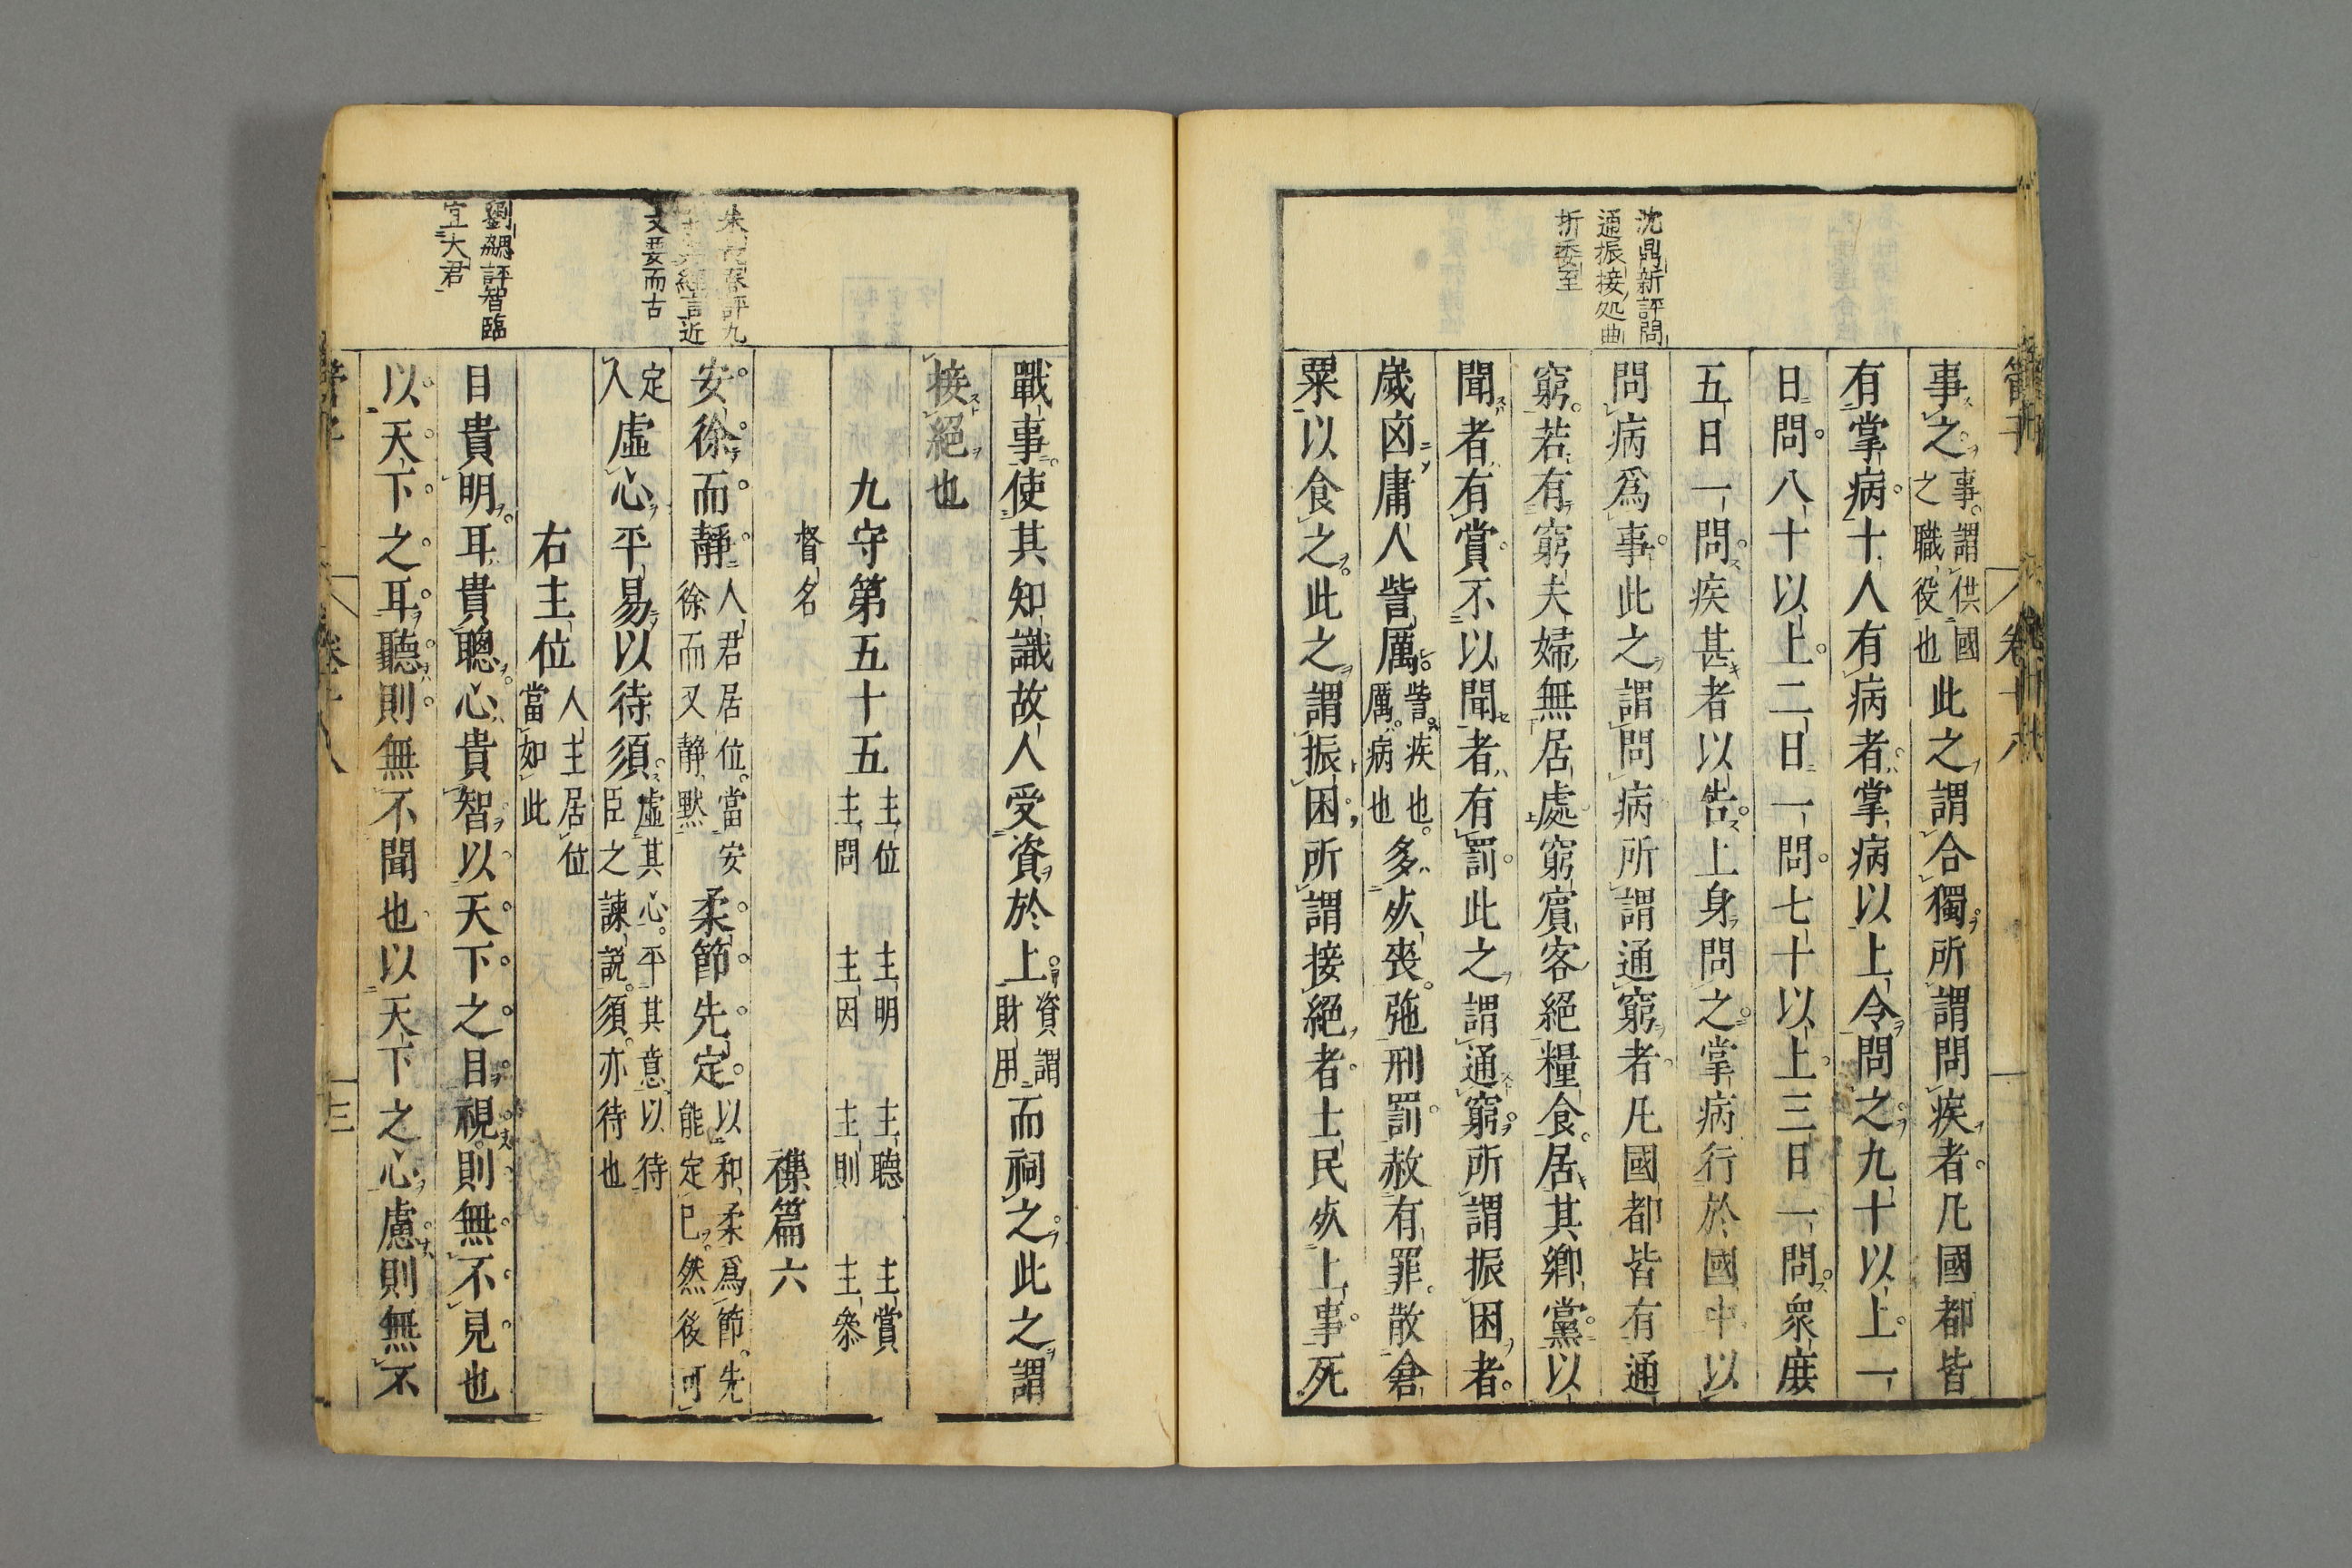 沈鼎新評問
通振接処曲
折委至
管子
卷十八
事之事謂供國之職役也此之謂合獨所謂問疾者凡國都皆
有掌病十人有病者掌病以上令問之九十以上一
日問八十以上二日一問七十以上三日一問衆庻
五日一問疾甚者以告上身問之掌病行於國中以
問病爲事此之謂問病所謂通窮者凡國都皆有通
窮若有窮夫婦無居處窮賔客絕糧食居其鄉黨以
聞者有賞不以聞者有罰此之謂通窮所謂振困者
歲凶庸人訾厲訾疾也厲病也多死喪弛刑罰赦有罪散倉
粟以食之此之謂振困所謂接絕者士民死上事死
評九
言近
文要而古
劉勰評智臨
宜大君
戰事使其知識故人受資於上資謂財用而祠之此之謂
接絕也
九守第五十五主位主問主明主因主聽主則主賞主叅
督名
襍篇六
安徐而靜人君居位當安徐而又靜默柔節先定以和柔爲節先能定已然後可
定人虛心平易以待須虛其心平其意以待臣之諫說須亦待也
右主位人主居位當如此
目貴明耳貴聰心貴智以天下之目視則無不見也
以天下之耳聽則無不聞也以天下之心慮則無不
管子
卷十八
三